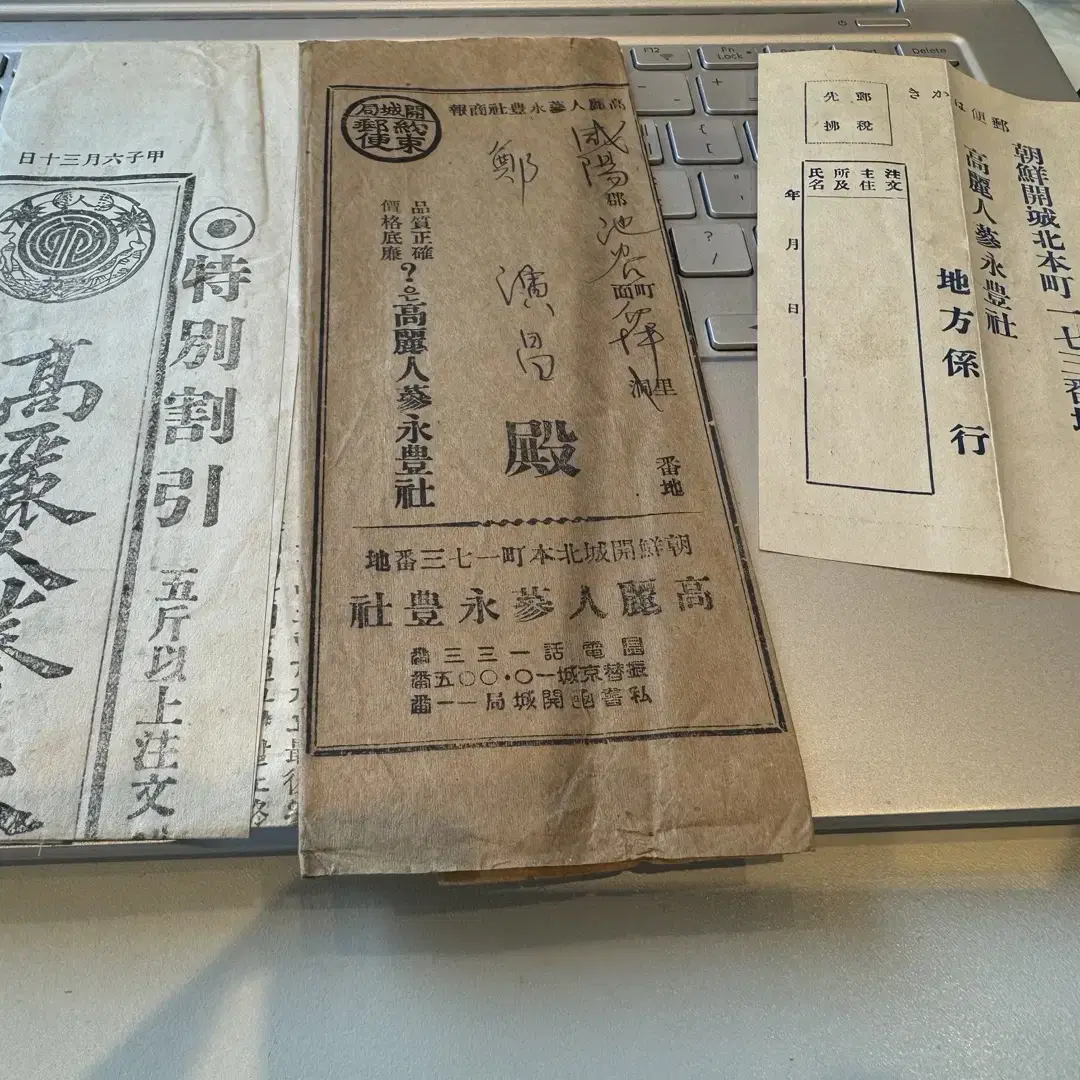 甲子六月三十日
特別割引
五斤以上注文
高麗人蔘
高麗人蔘永豊社商報
開城局
約束郵便
咸陽郡池谷面町
洞里
番地
鄭
昌
殿
品質正確
價格底廉
?은高麗人蔘永豊社
朝鮮開城北本町一七三番地
高麗人蔘永豊社
電話一三三番
振替京城一〇·〇〇五番
私書函開城局一一番
郵便はかき
郵稅先拂
朝鮮開城北本町一七三番地
高麗人蔘永豊社
地方係 行
注文主住所及氏名
年 月 日
F12
Fn Lock
Delete